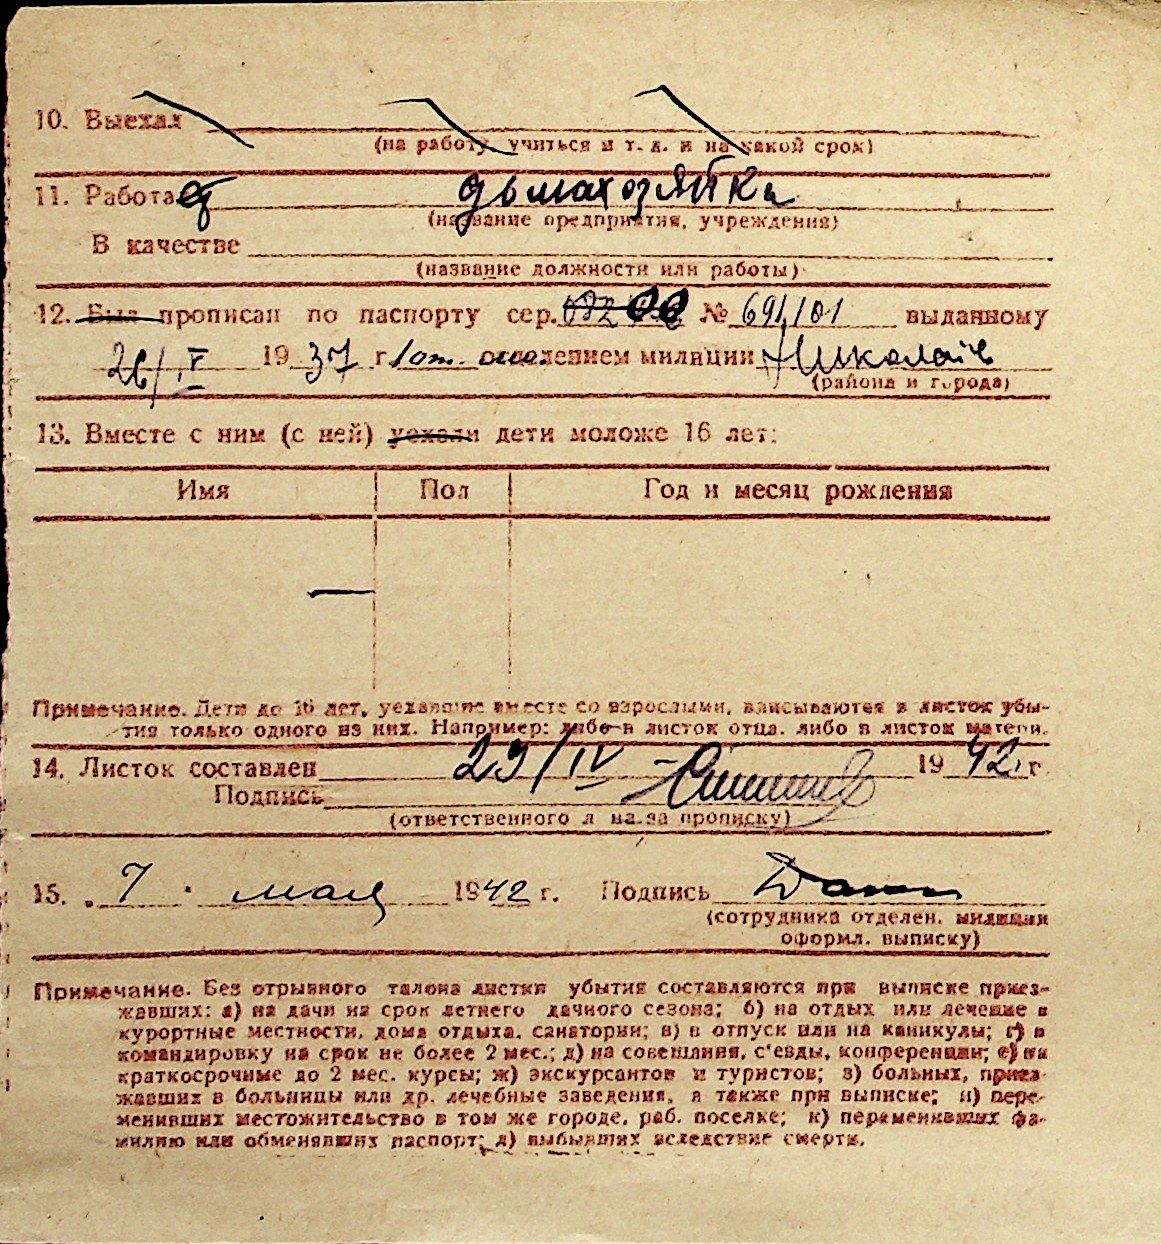 10. Выехал
(на работу, учиться и т. д. и на какой срок)
11. Работает домахозяйка
(название предприятия, учреждения)
В качестве
(название должности или работы)
12. Был прописан по паспорту сер. № 691101 выданному
26/IV 1937 г. 1 от. отделением милиции Николаев
(района и города)
13. Вместе с ним (с ней) уехали дети моложе 16 лет:
Имя Пол Год и месяц рождения
—
Примечание. Дети до 16 лет, уехавшие вместе со взрослыми, вписываются в листок убы-
тия только одного из них. Например: либо в листок отца, либо в листок матери.
14. Листок составлен 29/IV - 1942 г.
Подпись
(ответственного л на за прописку)
15. 7 . мая 1942 г. Подпись
(сотрудника отделен. милиции
оформл. выписку)
Примечание. Без отрывного талона листки убытия составляются при выписке приез-
жавших: а) на дачи на срок летнего дачного сезона; б) на отдых или лечение в
курортные местности, дома отдыха, санатории; в) в отпуск или на каникулы; г) в
командировку на срок не более 2 мес.; д) на совещания, с'езды, конференции; е) на
краткосрочные до 2 мес. курсы; ж) экскурсантов и туристов; з) больных, приез-
жавших в больницы или др. лечебные заведения, а также при выписке; и) пере-
менивших местожительство в том же городе, раб. поселке; к) переменивших фа-
милию или обменявших паспорт; л) выбывших вследствие смерти.